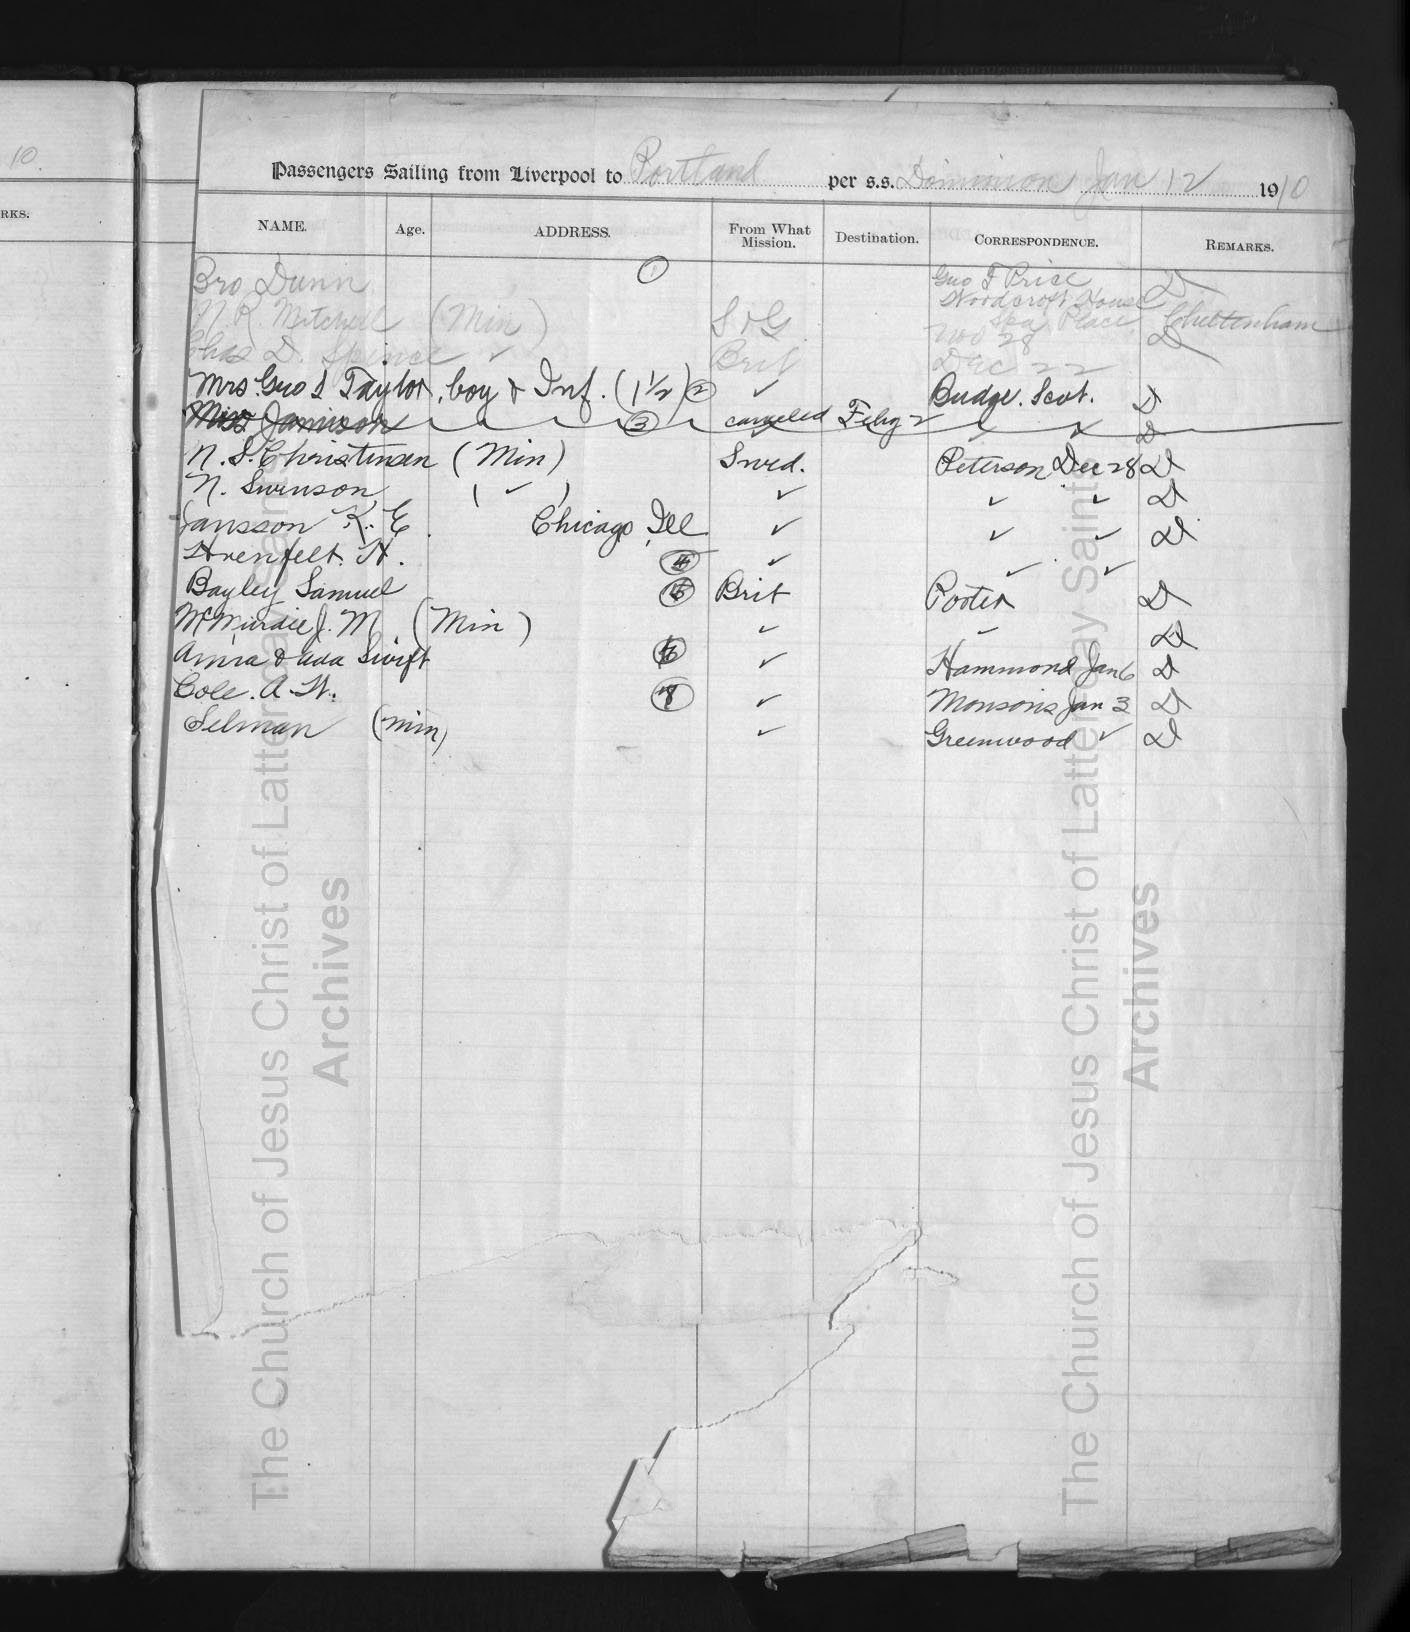 10
RKS.
Passengers Sailing from Liverpool to Portland per s.s. Dominion Jan 12 1910
NAME. Age. ADDRESS. From What Mission. Destination. CORRESPONDENCE. REMARKS.
Bro Dunn 1 Geo F Price D
Woodcroft House
Spa Place Cheltenham
N. R. Mitchell (Min) S & G Nov 28 D
Chas D. Spence ✓ Brit Dec 22
Mrs. Geo S Taylor, boy & Inf. (1 1/2) 2 ✓ Budge. Scot. D
Miss Jamison 3 canceled Feby 2 D
N. S. Christensen (Min) Swed. Peterson Dec 28 D
N. Swenson ( ✓ ) ✓ ✓ ✓ D
Jansson K. E. Chicago Ill ✓ ✓ ✓ D
H. 4 ✓ ✓ ✓
Bayley Samuel Brit Porter D
McMurdie J. M (Min) ✓ ✓ D
& Ada Swift 6 ✓ Hammond Jan 6 D
Cole. A. W. ✓ Monson Jan 3 D
Selman (min) ✓ Greenwood ✓ D
The Church of Jesus Christ of Latter-day Saints
Archives
The Church of Jesus Christ of Latter-day Saints
Archives